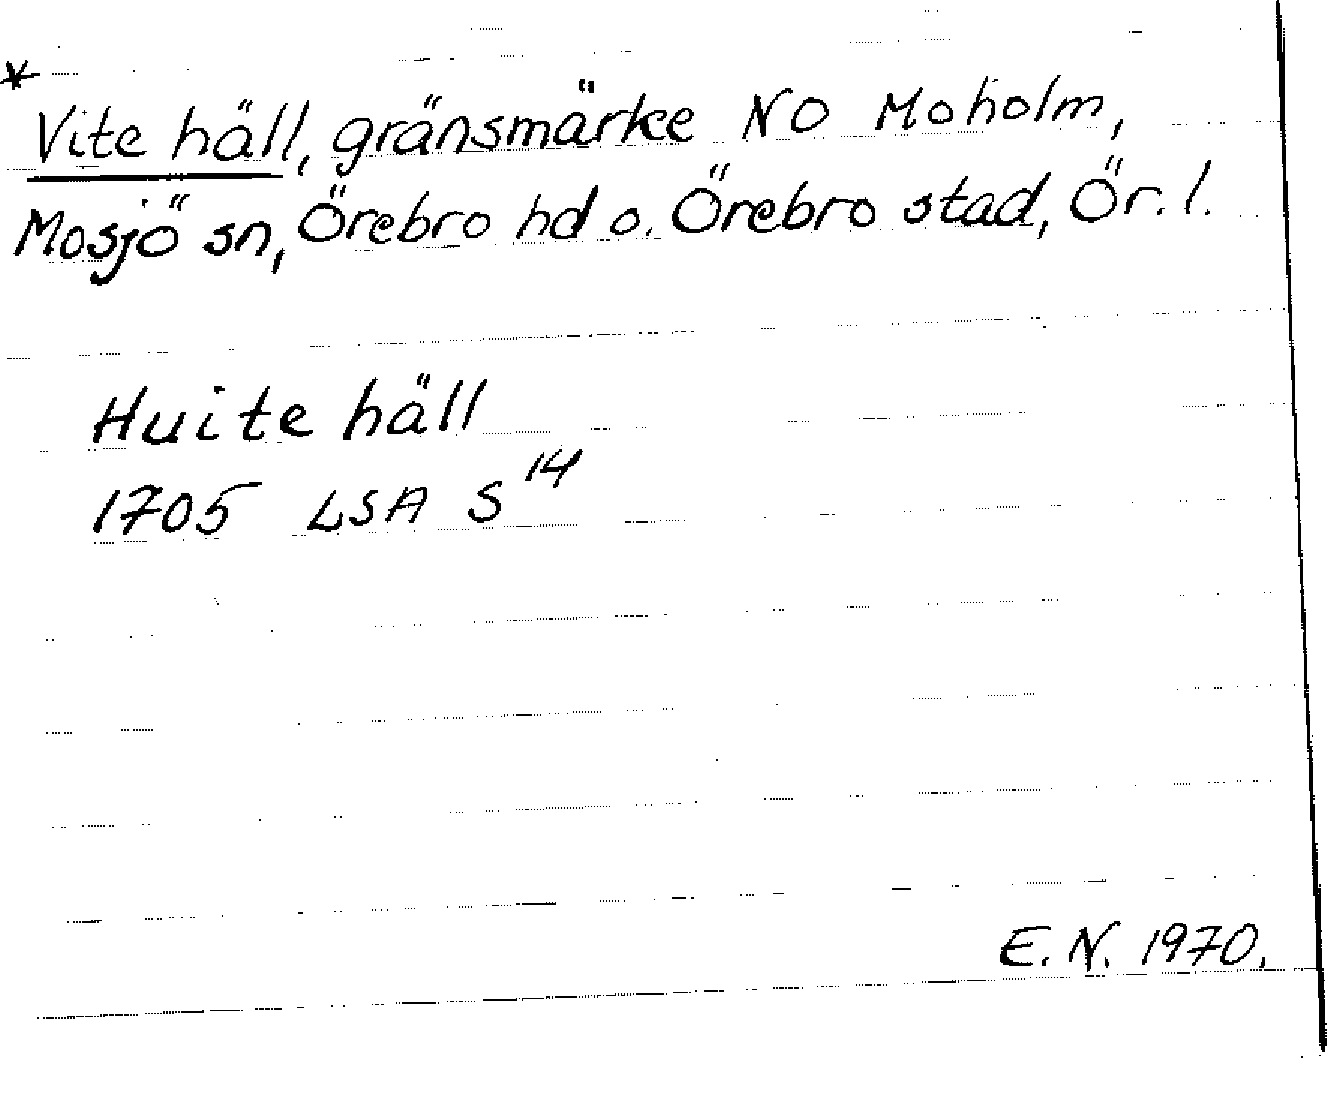 *
Vite häll, gränsmärke NO Moholm,
Mosjö sn, Örebro hd o. Örebro stad, Ör. l.
Huite häll
1705 LSA S 14
E. N. 1970.